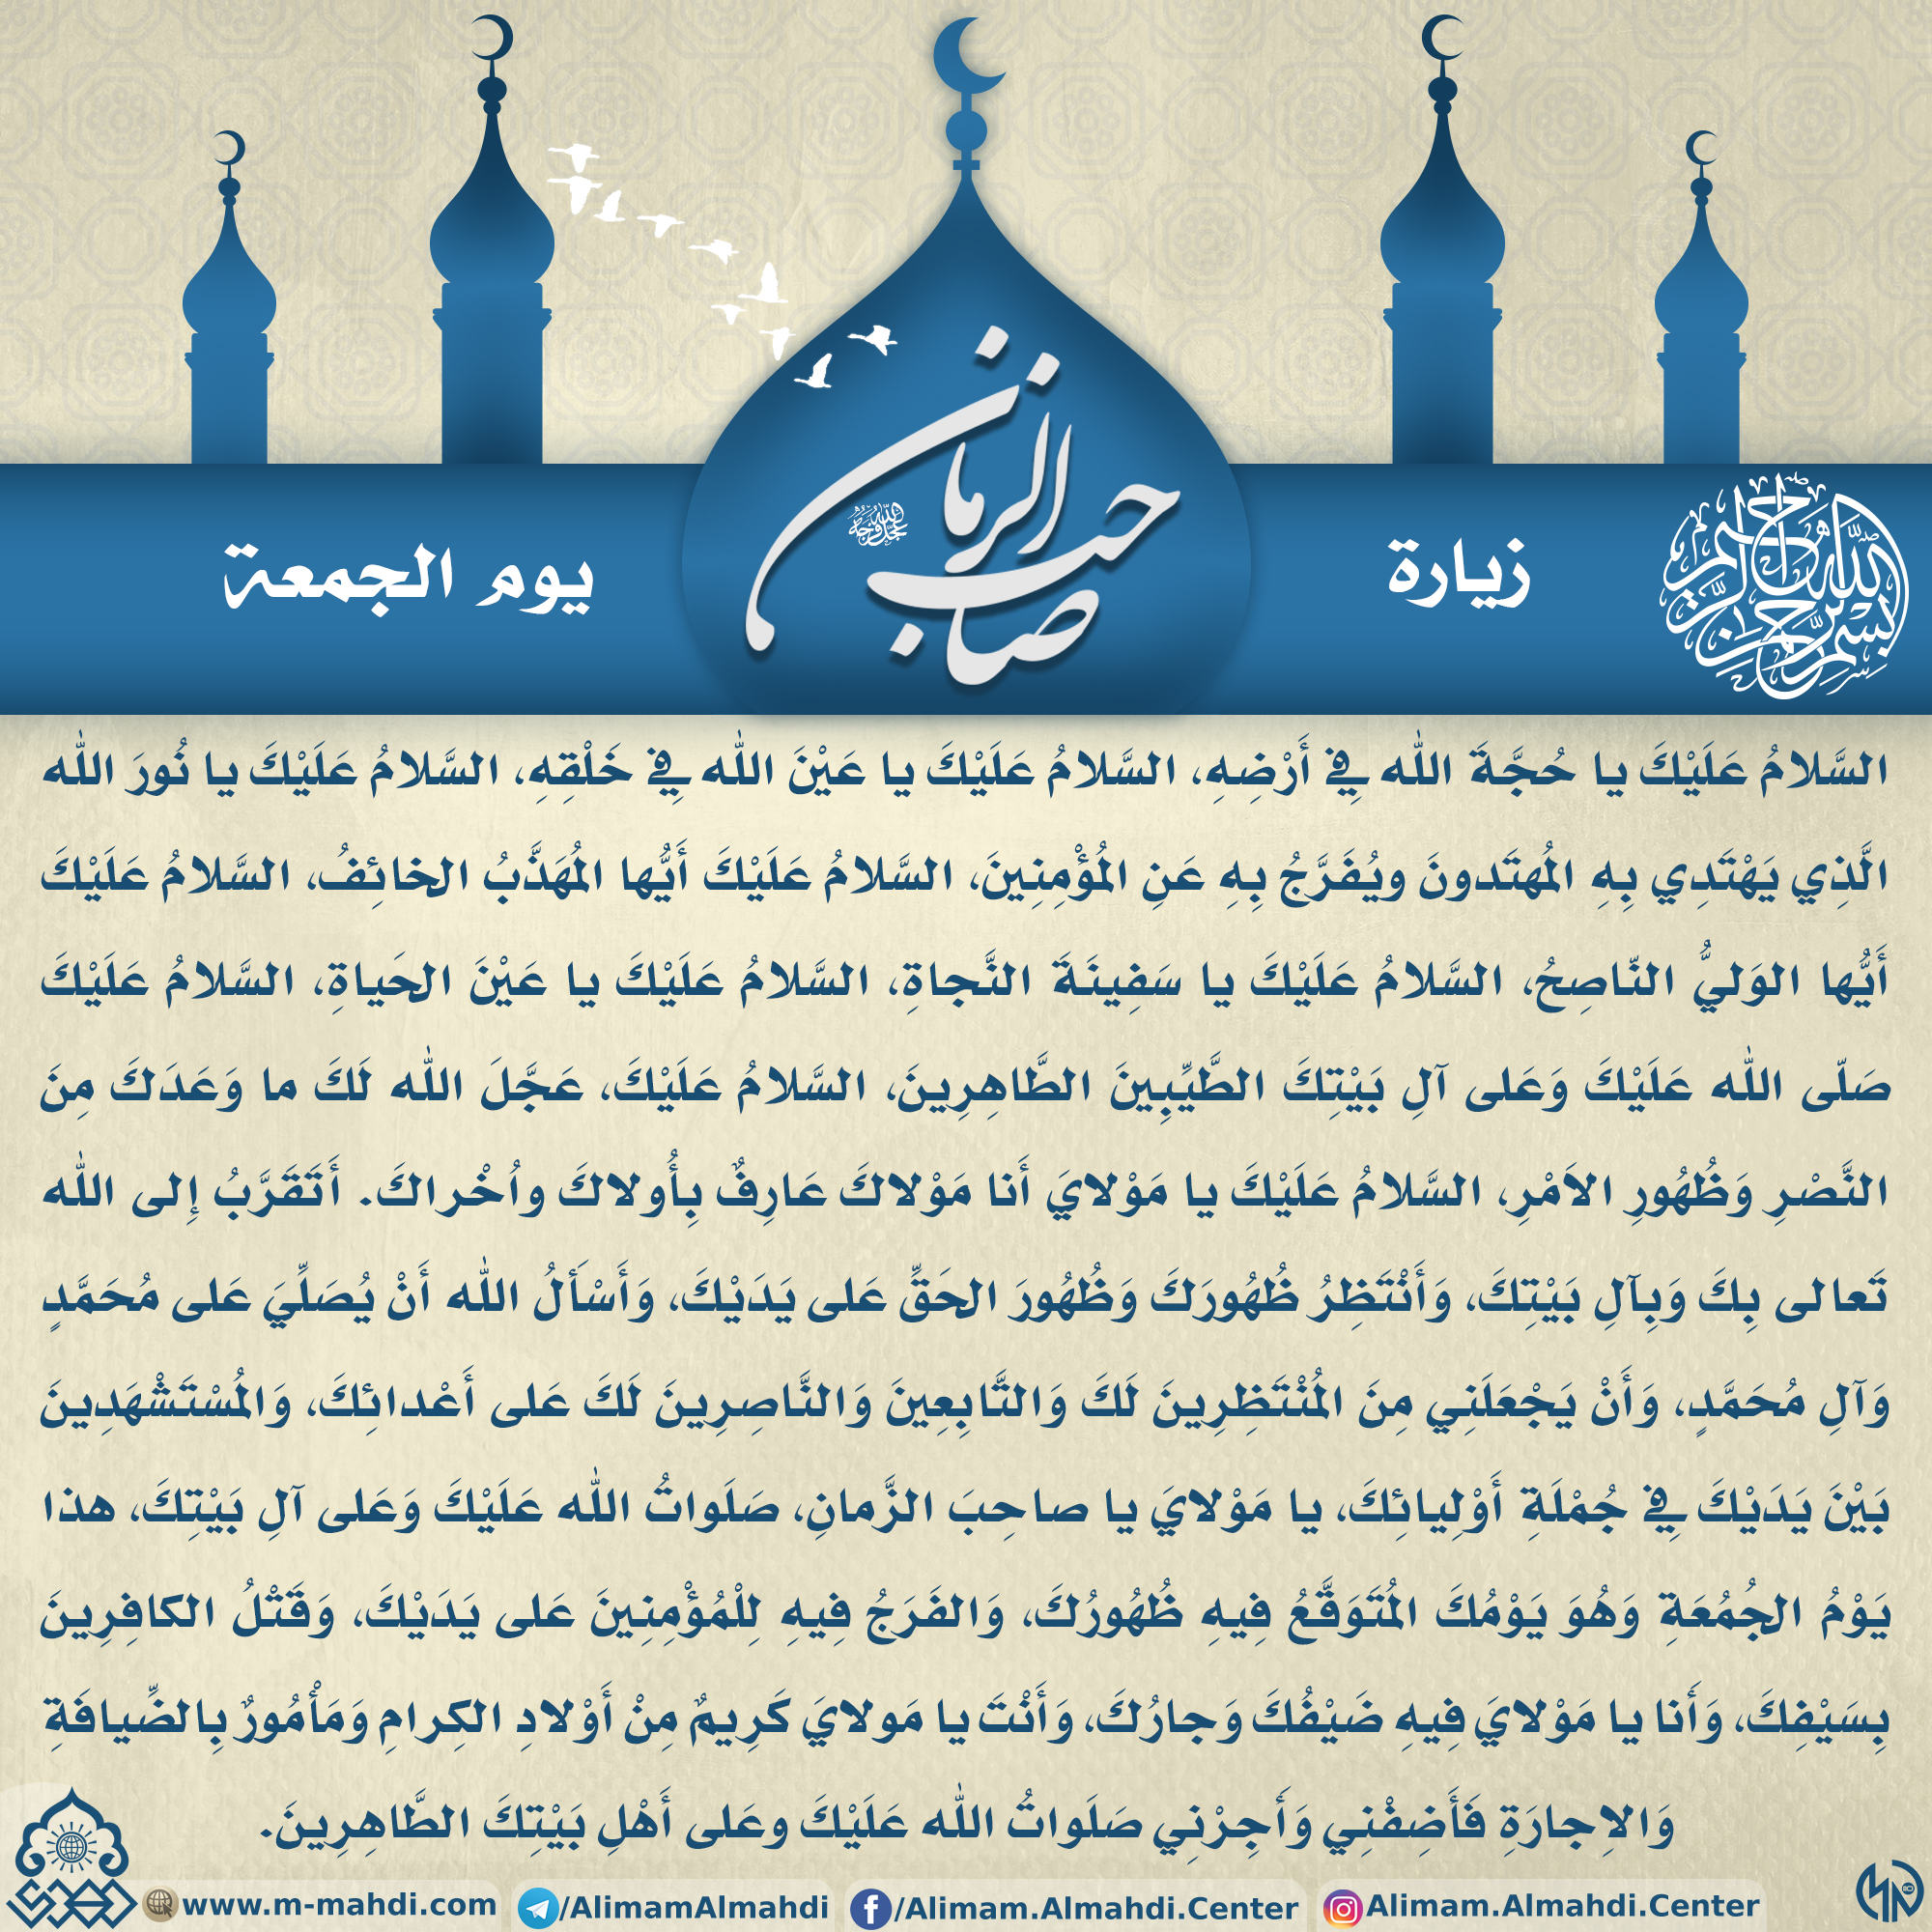 بسم الله الرحمن الرحيم
زيارة
صاحب الزمان
عجل الله فرجه
يوم الجمعة
السَّلامُ عَلَيْكَ يا حُجَّةَ الله فِي أَرْضِهِ، السَّلامُ عَلَيْكَ يا عَيْنَ الله فِي خَلْقِهِ، السَّلامُ عَلَيْكَ يا نُورَ الله
الَّذِي يَهْتَدِي بِهِ المُهتَدونَ ويُفَرَّجُ بِهِ عَنِ المُؤْمِنِينَ، السَّلامُ عَلَيْكَ أَيُّها المُهَذَّبُ الخائِفُ، السَّلامُ عَلَيْكَ
أَيُّها الوَليُّ النّاصِحُ، السَّلامُ عَلَيْكَ يا سَفِينَةَ النَّجاةِ، السَّلامُ عَلَيْكَ يا عَيْنَ الحَياةِ، السَّلامُ عَلَيْكَ
صَلّى الله عَلَيْكَ وَعَلى آلِ بَيْتِكَ الطَّيِّبِينَ الطَّاهِرِينَ، السَّلامُ عَلَيْكَ، عَجَّلَ الله لَكَ ما وَعَدَكَ مِنَ
النَّصْرِ وَظُهُورِ الاَمْرِ، السَّلامُ عَلَيْكَ يا مَوْلايَ أَنا مَوْلاكَ عَارِفٌ بِأُولاكَ واُخْراكَ. أَتَقَرَّبُ إِلى الله
تَعالى بِكَ وَبِآلِ بَيْتِكَ، وَأَنْتَظِرُ ظُهُورَكَ وَظُهُورَ الحَقِّ عَلى يَدَيْكَ، وَأَسْأَلُ الله أَنْ يُصَلِّيَ عَلى مُحَمَّدٍ
وَآلِ مُحَمَّدٍ، وَأَنْ يَجْعَلَنِي مِنَ المُنْتَظِرِينَ لَكَ وَالتَّابِعِينَ وَالنَّاصِرِينَ لَكَ عَلى أَعْدائِكَ، وَالمُسْتَشْهَدِينَ
بَيْنَ يَدَيْكَ فِي جُمْلَةِ أَوْلِيائِكَ، يا مَوْلايَ يا صاحِبَ الزَّمانِ، صَلَواتُ الله عَلَيْكَ وَعَلى آلِ بَيْتِكَ، هذا
يَوْمُ الجُمُعَةِ وَهُوَ يَوْمُكَ المُتَوَقَّعُ فِيهِ ظُهُورُكَ، وَالفَرَجُ فِيهِ لِلْمُؤْمِنِينَ عَلى يَدَيْكَ، وَقَتْلُ الكافِرِينَ
بِسَيْفِكَ، وَأَنا يا مَوْلايَ فِيهِ ضَيْفُكَ وَجارُكَ، وَأَنْتَ يا مَولايَ كَرِيمٌ مِنْ أَوْلادِ الكِرامِ وَمَأْمُورٌ بِالضِّيافَةِ
وَالاِجارَةِ فَأَضِفْنِي وَأَجِرْنِي صَلَواتُ الله عَلَيْكَ وعَلى أَهْلِ بَيْتِكَ الطَّاهِرِينَ.
www.m-mahdi.com /AlimamAlmahdi /Alimam.Almahdi.Center Alimam.Almahdi.Center